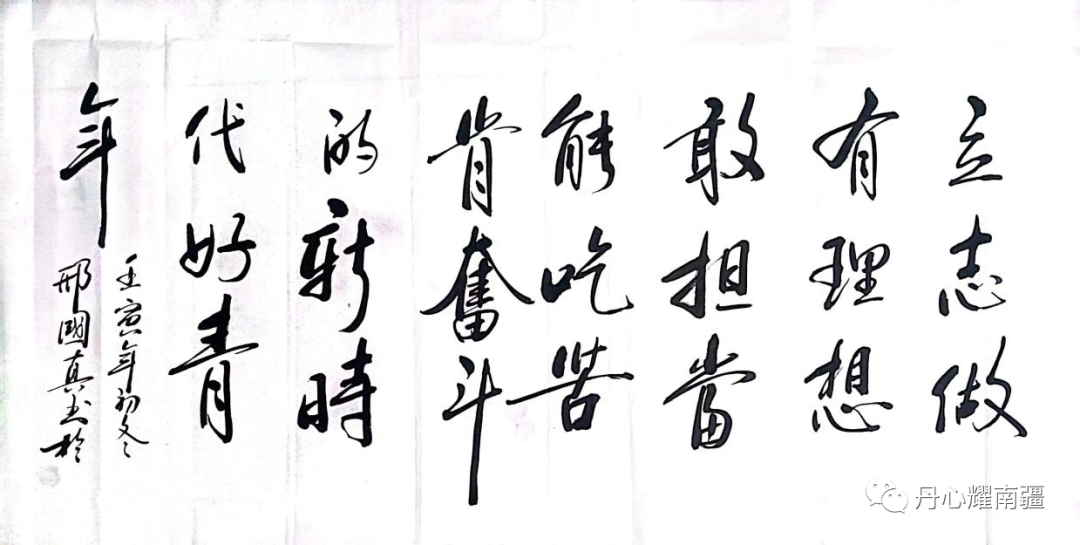 立志做
有理想
敢担當
能吃苦
肯奮斗
的新時
代好青
年
壬寅年初冬
邢國真书於
丹心耀南疆